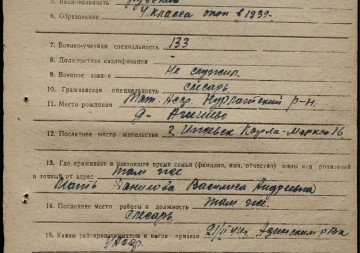 5. Национальность русский
6. Образование 4 класса окон в 1939г.
7. Военно-учетная специальность 133
8. Должностная квалификация -
9. Военное звание Не служил.
10. Гражданская специальность слесарь
11. Место рождения Тат. Асср. Нурлатский р-н.
д-
12. Последнее место жительства г. Ижевск Карла-Маркса 16
13. Где проживает в настоящее время семья (фамилия, имя, отчество) жены или родителей
и точный их адрес там же
Мать Данилова Василиса Андреевна
14. Последнее место работы и должность там же.
слесарь.
15. Каким райгорвоенкоматом и когда призван Азинским рвк
УАсср.